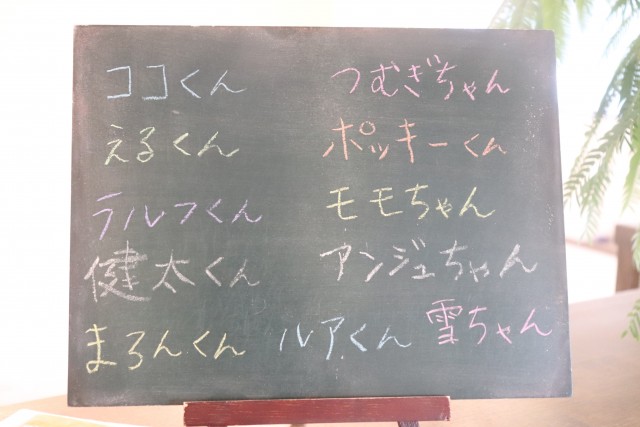 ココくん つむぎちゃん
えるくん ポッキーくん
ラルフくん モモちゃん
健太くん アンジュちゃん
まろんくん ルアくん 雪ちゃん